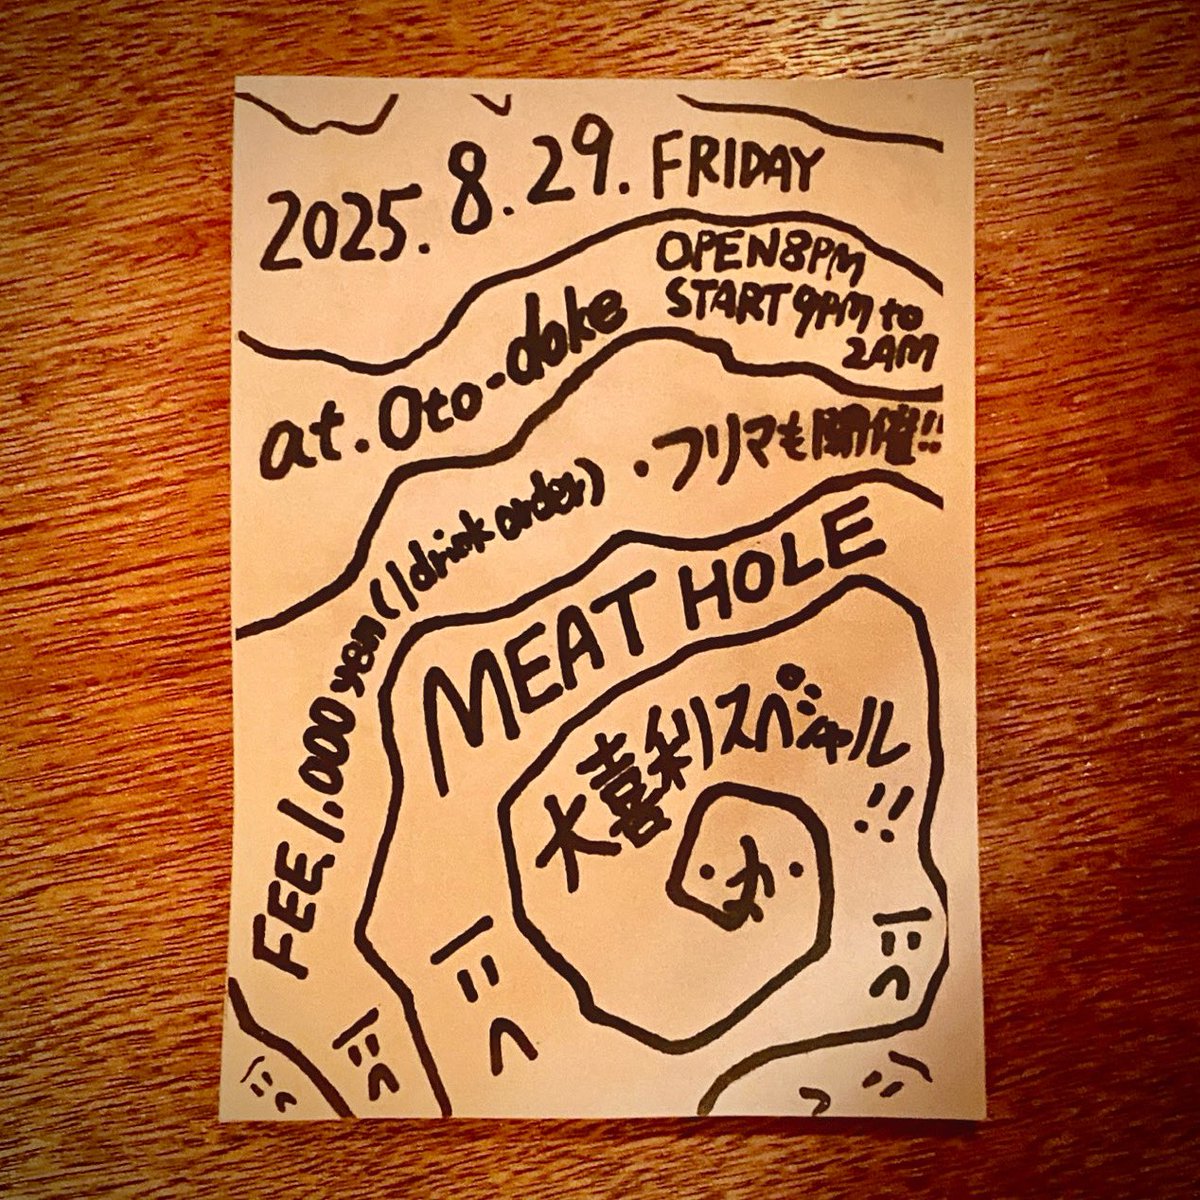 2025. 8. 29. FRIDAY
OPEN 8PM
START 9PM to
2AM
at. Oto-doke
・フリマも開催!!
FEE. 1,000 yen (1drink order)
MEAT HOLE
大喜利スペシャル!!